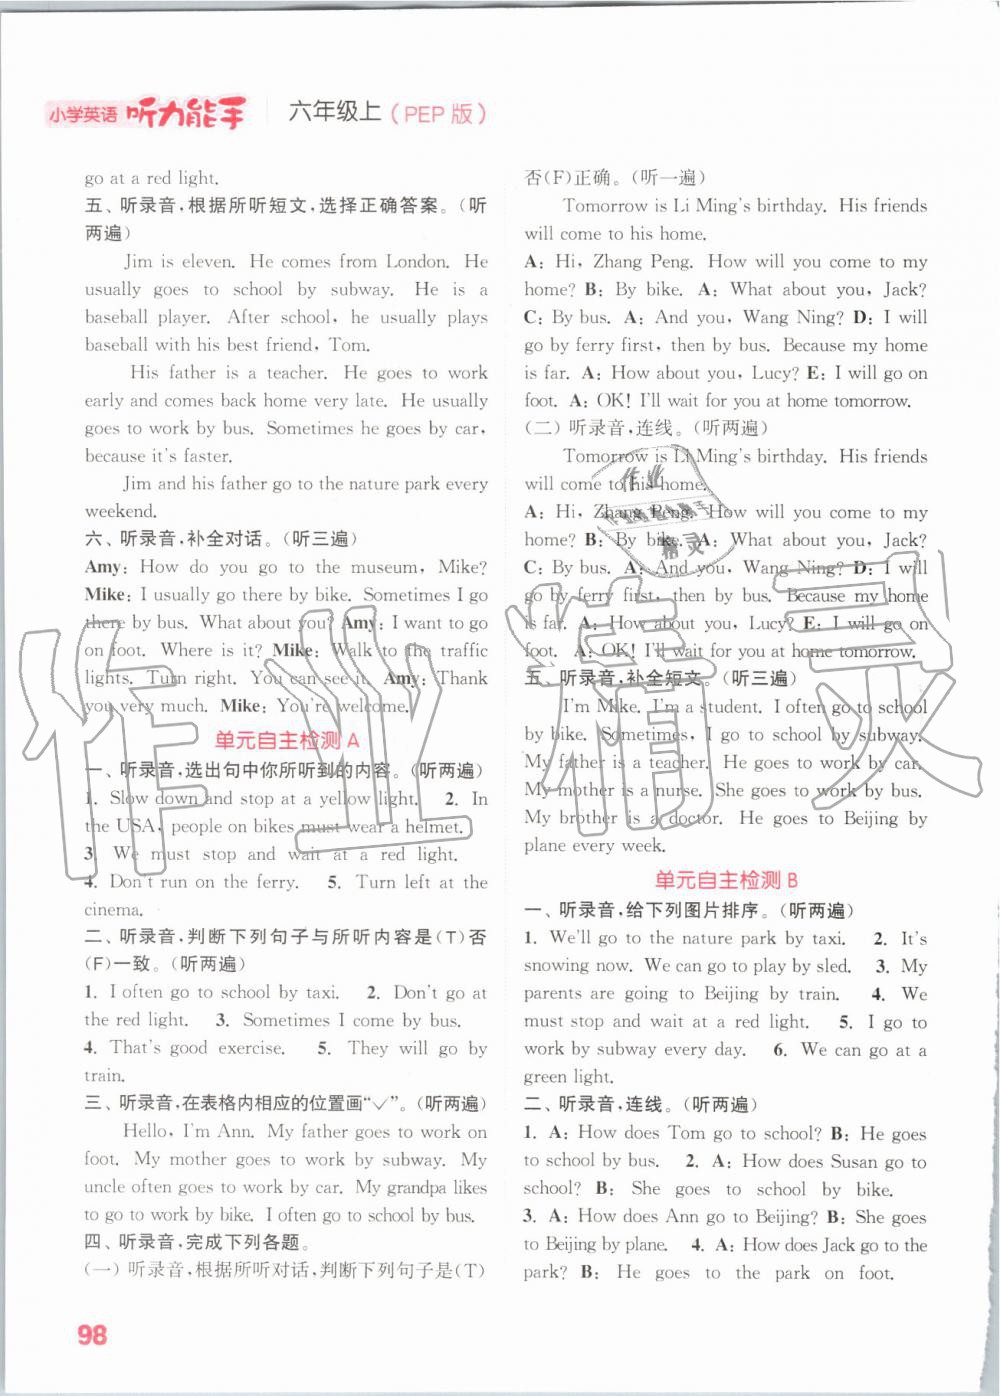 小学英语 听力能手 六年级上(PEP 版)
go at a red light.
五、听录音,根据所听短文,选择正确答案。(听
两遍)
Jim is eleven. He comes from London. He
usually goes to school by subway. He is a
baseball player. After school, he usually plays
baseball with his best friend, Tom.
His father is a teacher. He goes to work
early and comes back home very late. He usually
goes to work by bus. Sometimes he goes by car,
because it's faster.
Jim and his father go to the nature park every
weekend.
六、听录音,补全对话。(听三遍)
Amy: How do you go to the museum, Mike?
Mike: I usually go there by bike. Sometimes I go
there by bus. What about you? Amy: I want to go
on foot. Where is it? Mike: Walk to the traffic
lights. Turn right. You can see it. Amy: Thank
you very much. Mike: You're welcome.
单元自主检测 A
一、听录音,选出句中你所听到的内容。(听两遍)
1. Slow down and stop at a yellow light. 2. In
the USA, people on bikes must wear a helmet.
3. We must stop and wait at a red light.
4. Don't run on the ferry. 5. Turn left at the
cinema.
二、听录音,判断下列句子与所听内容是(T)否
(F)一致。(听两遍)
1. I often go to school by taxi. 2. Don't go at
the red light. 3. Sometimes I come by bus.
4. That's good exercise. 5. They will go by
train.
三、听录音,在表格内相应的位置画“✓”。(听两遍)
Hello, I'm Ann. My father goes to work on
foot. My mother goes to work by subway. My
uncle often goes to work by car. My grandpa likes
to go to work by bike. I often go to school by bus.
四、听录音,完成下列各题。
(一)听录音,根据所听对话,判断下列句子是(T)
否(F)正确。(听一遍)
Tomorrow is Li Ming's birthday. His friends
will come to his home.
A: Hi, Zhang Peng. How will you come to my
home? B: By bike. A: What about you, Jack?
C: By bus. A: And you, Wang Ning? D: I will
go by ferry first, then by bus. Because my home
is far. A: How about you, Lucy? E: I will go on
foot. A: OK! I'll wait for you at home tomorrow.
(二)听录音,连线。(听两遍)
Tomorrow is Li Ming's birthday. His friends
will come to his home.
A: Hi, Zhang Peng. How will you come to my
home? B: By bike. A: What about you, Jack?
C: By bus. A: And you, Wang Ning? D: I will
go by ferry first, then by bus. Because my home
is far. A: How about you, Lucy? E: I will go on
foot. A: OK! I'll wait for you at home tomorrow.
五、听录音,补全短文。(听三遍)
I'm Mike. I'm a student. I often go to school
by bus. Sometimes, I go to school by subway.
My father is a teacher. He goes to work by car.
My mother is a nurse. She goes to work by bus.
My brother is a doctor. He goes to Beijing by
plane every week.
单元自主检测 B
一、听录音,给下列图片排序。(听两遍)
1. We'll go to the nature park by taxi. 2. It's
snowing now. We can go to play by sled. 3. My
parents are going to Beijing by train. 4. We
must stop and wait at a red light. 5. I go to
work by subway every day. 6. We can go at a
green light.
二、听录音,连线。(听两遍)
1. A: How does Tom go to school? B: He goes
to school by bus. 2. A: How does Susan go to
school? B: She goes to school by bike.
3. A: How does Ann go to Beijing? B: She goes to
Beijing by plane. 4. A: How does Jack go to the
park? B: He goes to the park on foot.
98
作业精灵